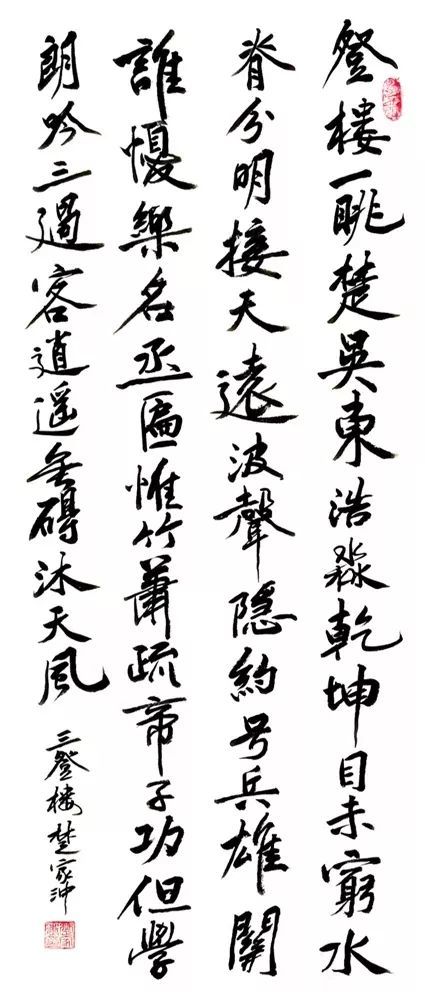 登樓一眺楚吳東浩淼乾坤目未窮水
脊分明接天遠波聲隱約号兵雄關
誰懮樂名丞匾惟竹蕭疏帝子功但學
朗吟三過客逍遙無碍沐天風
三登樓楚家沖